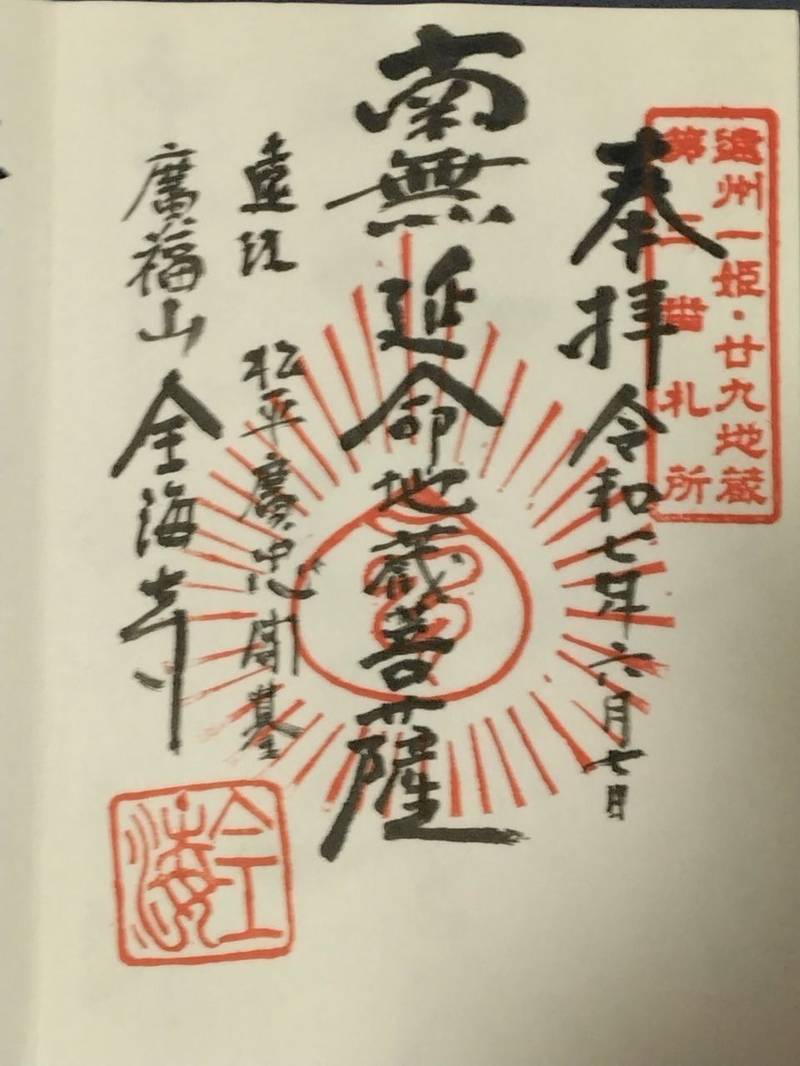 遠州一姫・廿九地蔵
第二番札所
奉拝 令和七年六月七日
南無延命地蔵菩薩
遠江 松平廣忠開基
廣福山 全海寺
全海